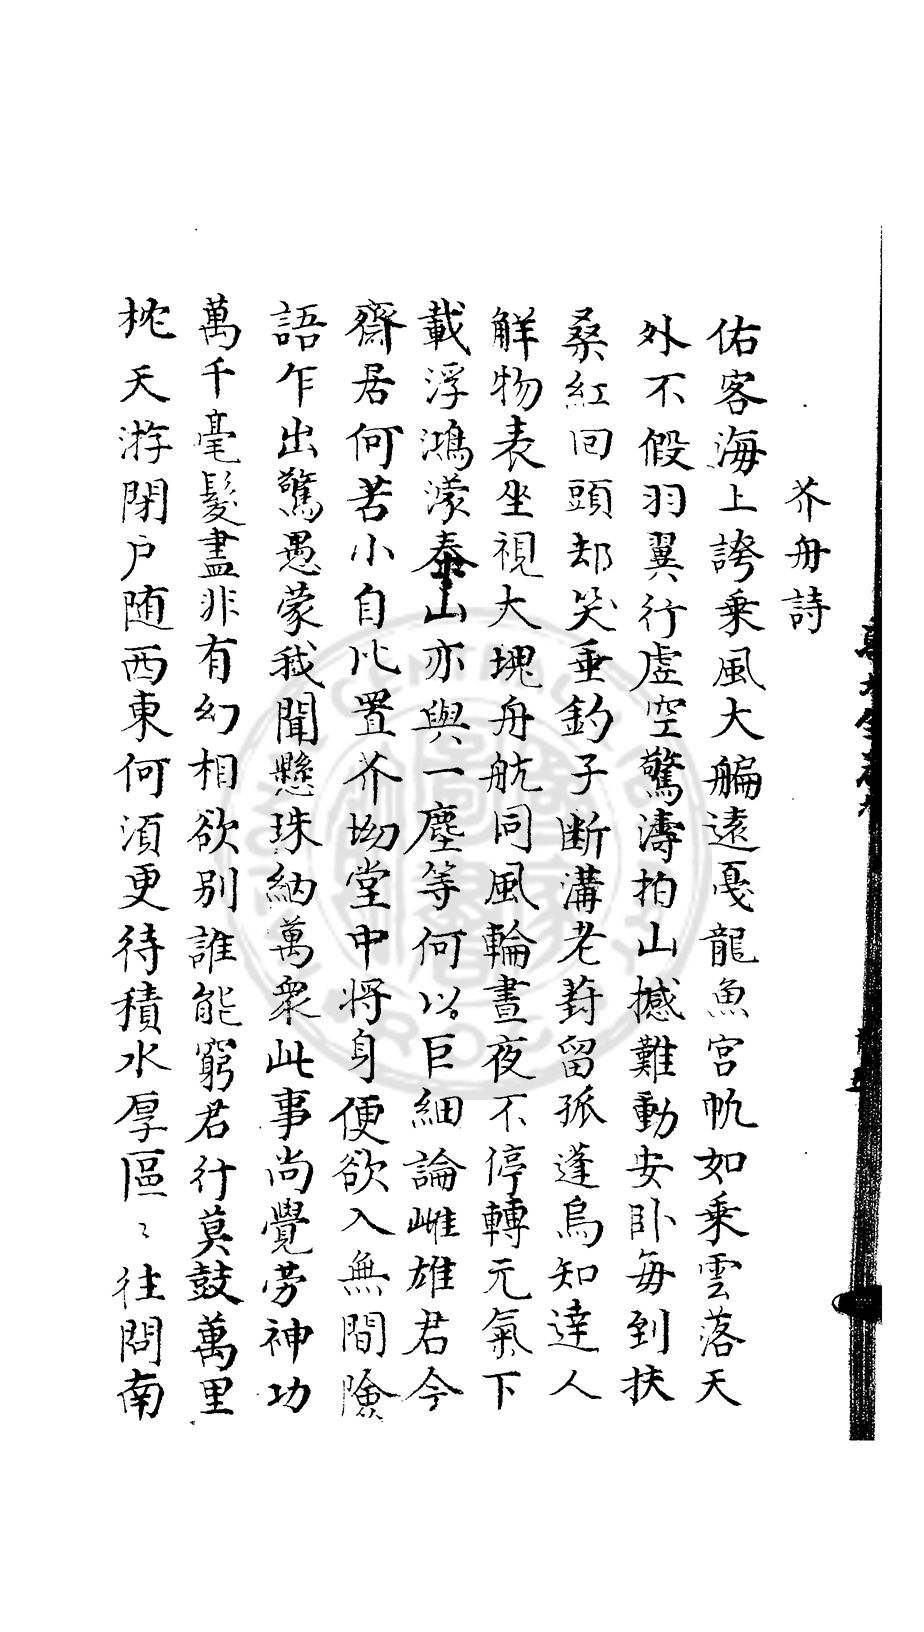 芥舟詩
佑客海上誇乘風大艑遠戞龍魚宮帆如乘雲落天
外不假羽翼行虛空驚濤拍山撼難動安卧每到扶
桑紅回頭却笑垂釣子斷溝老葑留孤蓬烏知達人
觧物表坐視大塊舟航同風輪晝夜不停轉元氣下
載浮鴻濛泰山亦與一塵等何以巨細論雌雄君今
齋居何苦小自比置芥坳堂中將身便欲入無間險
語乍出驚愚蒙我聞懸珠納萬衆此事尚覺劳神功
萬千毫髮盡非有幻相欲别誰能窮君行莫鼓萬里
柁天游閉户随西東何須更待積水厚區〻往問南